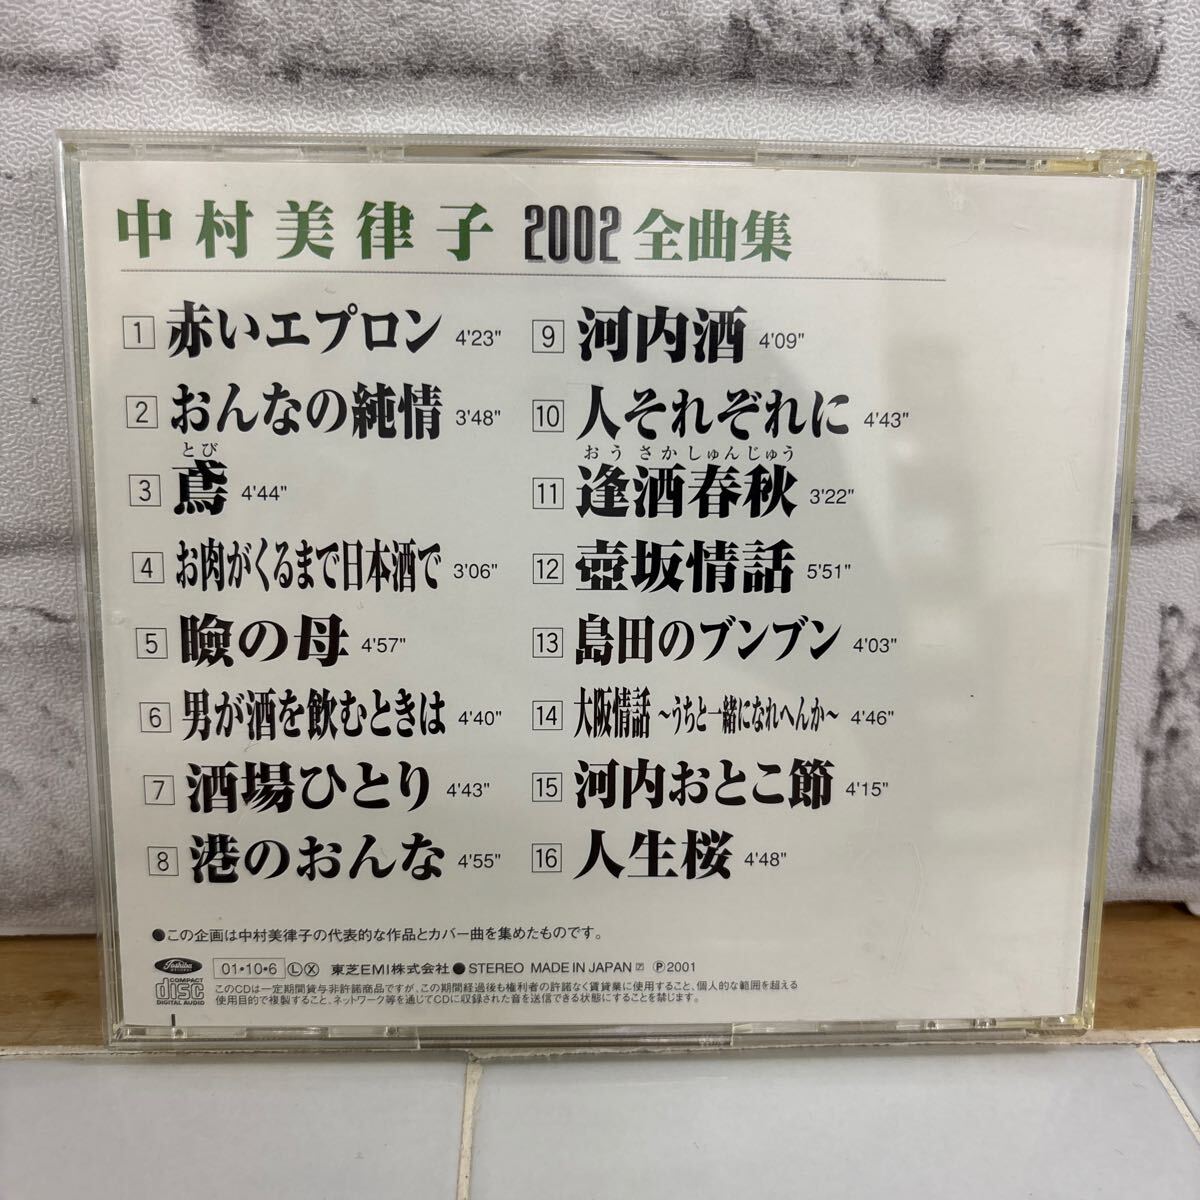 中村美律子 2002 全曲集
1 赤いエプロン 4'23"
2 おんなの純情 3'48"
とび
3 鳶 4'44"
4 お肉がくるまで日本酒で 3'06"
5 瞼の母 4'57"
6 男が酒を飲むときは 4'40"
7 酒場ひとり 4'43"
8 港のおんな 4'55"
9 河内酒 4'09"
10 人それぞれに 4'43"
おうさかしゅんじゅう
11 逢酒春秋 3'22"
12 壺坂情話 5'51"
13 島田のブンブン 4'03"
14 大阪情話 〜うちと一緒になれへんか〜 4'46"
15 河内おとこ節 4'15"
16 人生桜 4'48"
●この企画は中村美律子の代表的な作品とカバー曲を集めたものです。
Toshiba 01・10・6 Ⓛ Ⓧ 東芝EMI株式会社 ● STEREO MADE IN JAPAN ℗2001
COMPACT disc DIGITAL AUDIO
このCDは一定期間貸与非許諾商品ですが、この期間経過後も権利者の許諾なく賃貸業に使用すること、個人的な範囲を超える
使用目的で複製すること、ネットワーク等を通じてCDに収録された音を送信できる状態にすることを禁じます。